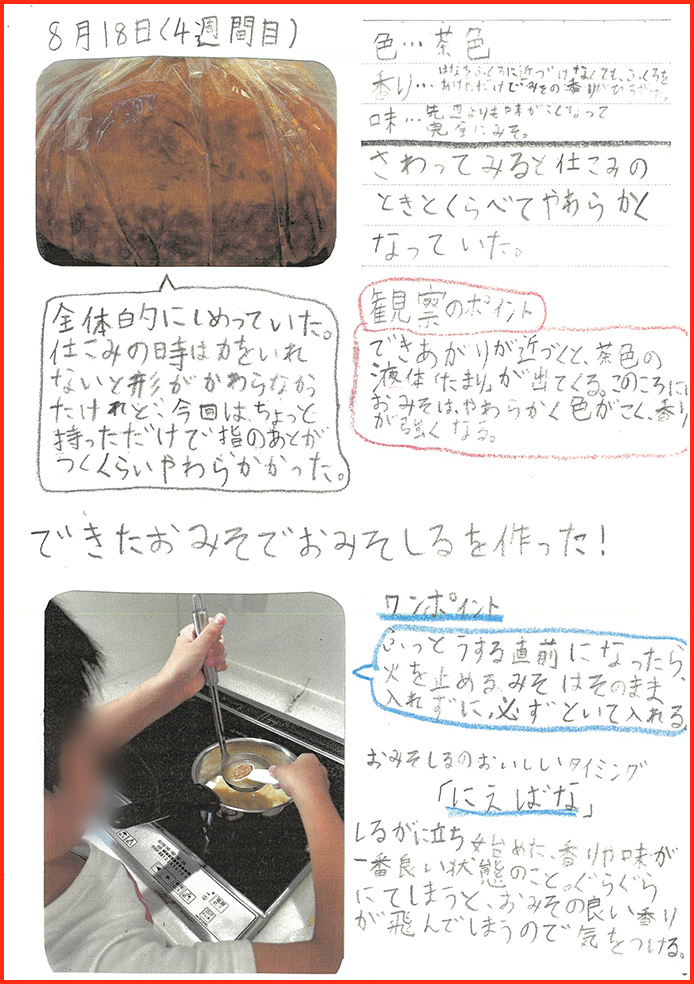 8月18日(4週間目)
色…茶色
香り…はなをふくろに近づけなくても、ふくろを
あけただけでみその香りが
味…先週よりも味がこくなって
完全にみそ。
さわってみると仕こみの
ときとくらべてやわらかく
なっていた。
全体的にしめっていた。
仕こみの時は力をいれ
ないと形がかわらなかっ
たけれど、今回は、ちょっと
持っただけで指のあとが
つくくらいやわらかかった。
観察のポイント
できあがりが近づくと、茶色の
液体「たまり」が出てくる。このころに
おみそは、やわらかく色がこく、香り
が強くなる。
できたおみそでおみそしるを作った!
ワンポイント
ふっとうする直前になったら、
火を止める。みそはそのまま
入れずに、必ずといて入れる。
おみそしるのおいしいタイミング
「にえばな」
しるがに立ち始めた、香りや味が
一番良い状態のこと。ぐらぐら
にてしまうと、おみその良い香り
が飛んでしまうので気をつける。